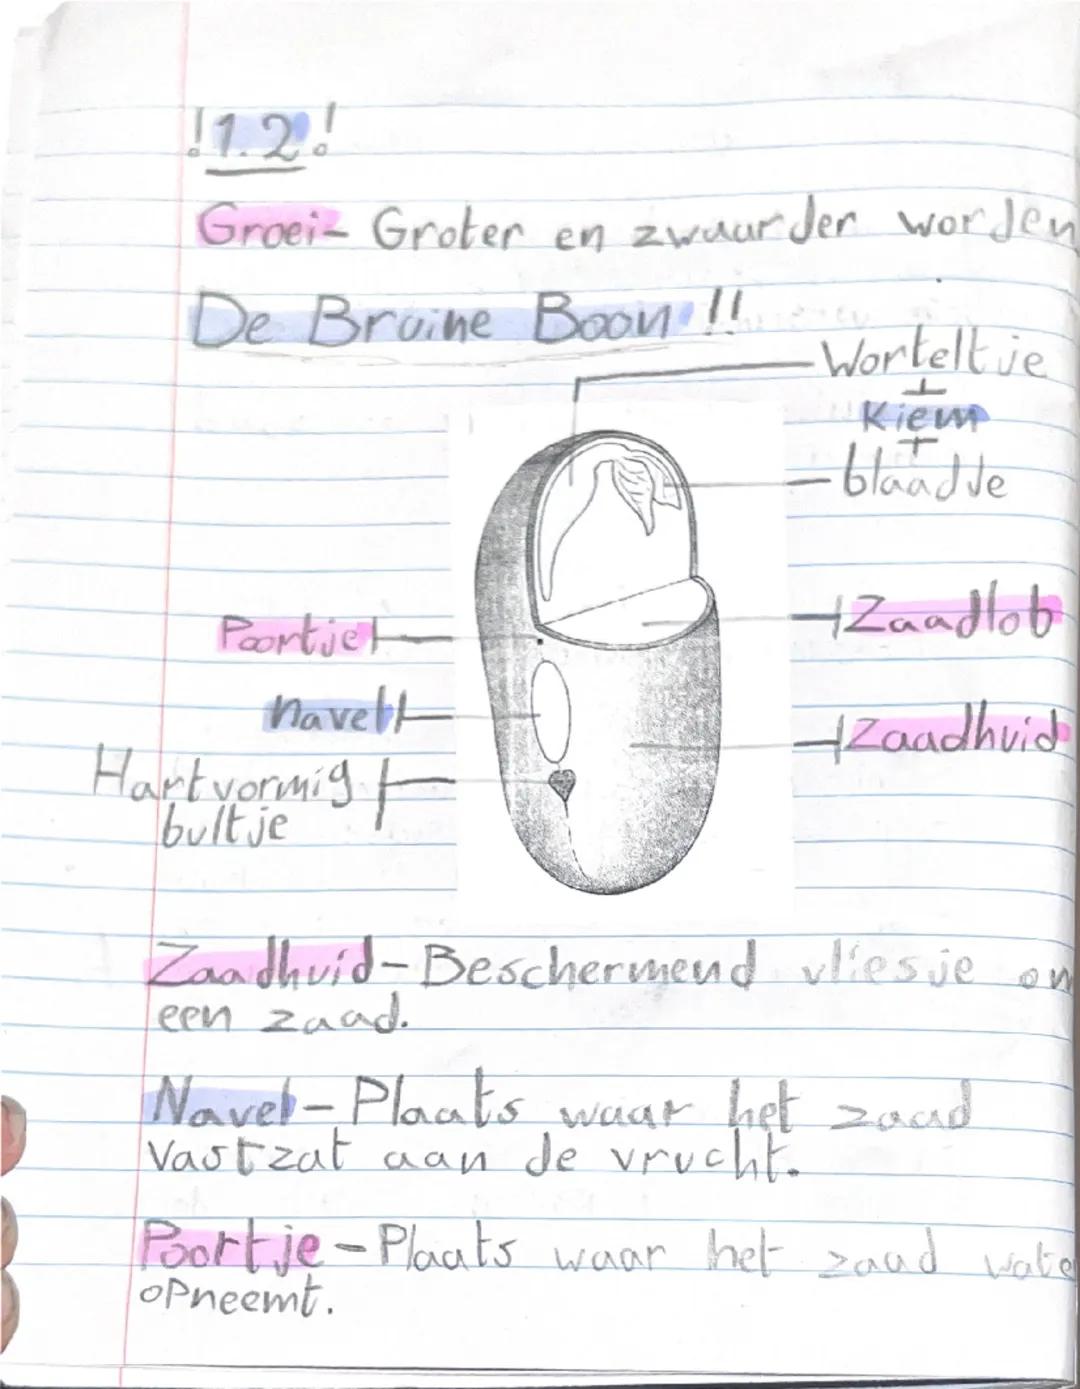 !1.2!
Groei- Groter en zwaarder worden
De Bruine Boon !!
Worteltje
+
Kiem
+
blaadje
Poortje
Zaadlob
navel
Zaadhuid
Hartvormig
bultje
Zaadhuid-Beschermend vliesje om
een zaad.
Navel-Plaats waar het zaad
Vastzat aan de vrucht.
Poortje-Plaats waar het zaad wate
opneemt.